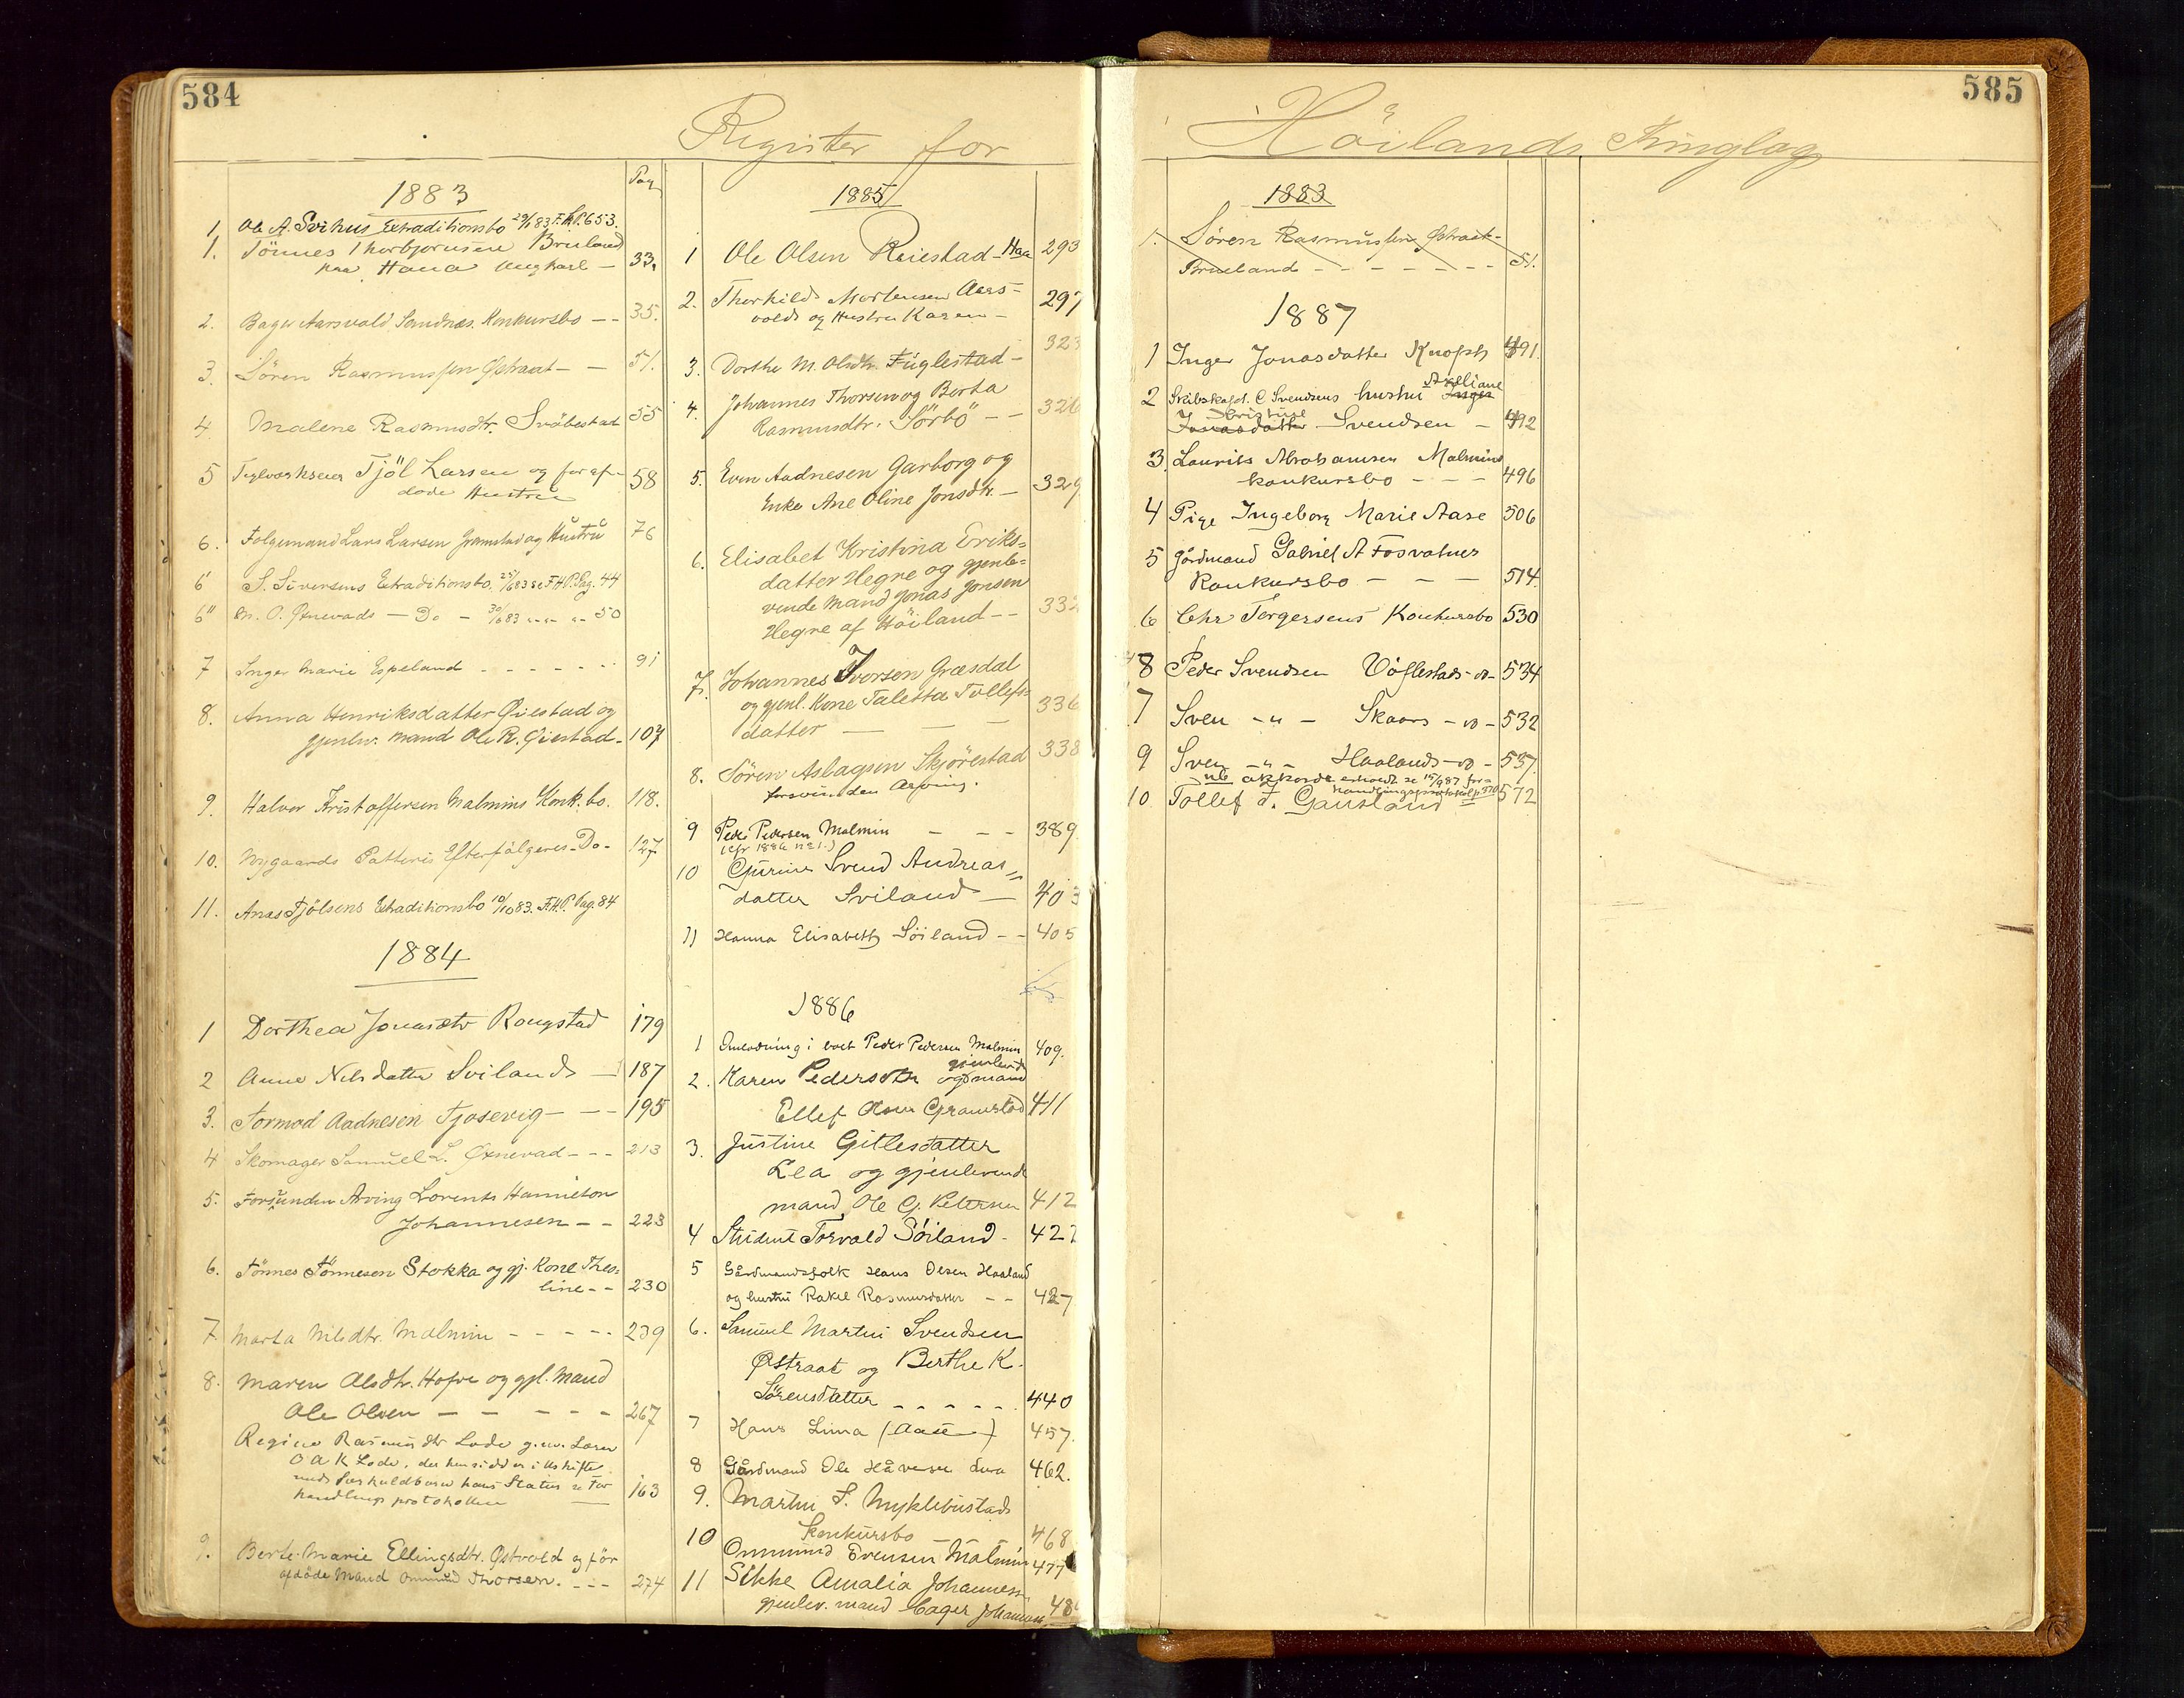 584
Register for
1883
Pag
1. Ole A. Svihus Extraditionsbo 29/1 83 F.H.P. 653.
1. Tönnes Thorbjørnsen Brueland
paa Hana Ungkarl — 33.
2. Bager Aarsvold Sandnæs. Konkursbo — — 35.
3. Sören Rasmussen Østraat — — 51.
4. Malene Rasmusdtr. Svöbestad 55
5 Teglværkseier Tjöl Larsen og for af-
døde Hustru 58
6. Folgemand Lars Larsen Gramstad og Hustru 76
6' S. Siversens Extraditionsbo. 25/6 83 se F.H.P. Pag. 44
6" M. O. Øxnevads — Do — 30/6 83 „ „ „ 50
7 Inger Marie Espeland - - - - - - 91
8. Anna Henriksdatter Øiestad og
gjenlev. Mand Ole R. Øiestad - 107
9. Halvor Kristoffersen Malmins Konk. bo. 118.
10. Nygaards Potteris Efterfölgeres - Do - 127
11. Anas Tjölsens Extraditionsbo 19/10 83. F.H.P. Pag. 84
1884
1 Dorthea Jonasdtr Rougstad 179
2 Anne Nilsdatter Sviland — 187
3. Tormod Aadnesen Tjosevig — — — 195
4 Skomager Samuel L. Øxnevad - - - 213
5. Forsvunden Arving Lorents Hamilton
Johannesen — — 223
6. Tönnes Tönnesen Stokka og gj. Kone Theo-
line - - 230
7. Marta Nilsdtr. Malmin - - - - - 239
8. Maren Olsdtr. Hofve og gjl. Mand
Ole Olsen — — — — — 267
Regine Rasmusdtr Lode g.m. Lars
O A K Lode, der hensidder i Uskifte
med Særkuldbørn hans Status se For
handlings protokollen — 163
9. Berte Marie Ellingsdtr. Østvold og för
afdöde Mand Ommund Thorsen. - - - 274
1885
1 Ole Olsen Reiestad - Haa 293
2. Thorkild Mortensen Aars-
vold og Hustru Karen — 297
3. Dorthe M. Olsdtr. Fuglestad — 323
4. Johannes Thorsen og Berta
Rasmusdtr. Sörbö — — 326
5. Even Aadnesen Garborg og
Enke Ane Oline Jonsdtr. — 329
6. Elisabet Kristina Eriks-
datter Hegre og gjenle-
vende Mand Jonas Jonsen
Hegre af Höiland - - 332
7. Johannes Iversen Græsdal
og gjenl. Kone Taletta Tollefs-
datter — — — 336
8. Sören Aslagsen Skjörestad 338
forsvunden Arving.
9 Peder Pedersen Malmin — - - 389
(cfr 1886 No 1.)
10 Gurine Svend Andreas-
datter Sviland — 403
11 Hanna Elisabeth Söiland - - 405
1886
1 Omlodning i boet Peder Pedersen Malmin 409.
2. Karen Pedersdtr og gjenlevd mand
Ellef Olsen Gramstad 411
3. Justine Gitlesdatter
Lea og gjenlevende
mand, Ole G. Petersen 412
4 Student Torvald Söiland - 42
5 Gårdmandsfolk Hans Olsen Haaland
og hustru Rakel Rasmusdatter - - 427
6. Samuel Martin Svendsen
Østraat og Berthe K.
Sörensdatter - - - - - 440
7 Hans Lima (Aase) 457.
8 Gårdmand Ole Håversen Lura 462.
9. Martin S. Myklebustads
Konkursbo — 468
10 Ommund Evensen Malmin 477
11 Sikke Amalia Johanness-
gjenlev. mand Bager Johannesen 48
585
Höilands Thinglag
1883
1. Sören Rasmussen Østraat -
Brueland - - - - - - - 51.
1887
1 Inger Jonasdatter Knoph 491.
2 Skibskapt. C Svendsens hustru Inger Axeliane
Jonasdatter Christine Svendsen - 492
3. Laurits Abrahamsen Malmins
konkursbo - - - 496
4 Pige Ingeborg Marie Aase 506
5 Gårdmand Gabriel A Fosvatnes
Konkursbo — — — 514.
6 Chr Torgersens Konkursbo 530
8 Peder Svendsen Vöglestads - do - 534
7 Sven - „ - Skaars - do - 532
9 Sven - „ - Haalands - do - 537.
NB akkord erholdt se 15/9 87 for-
handlingsprotokol p 370
10 Tollef T. Gausland — 572